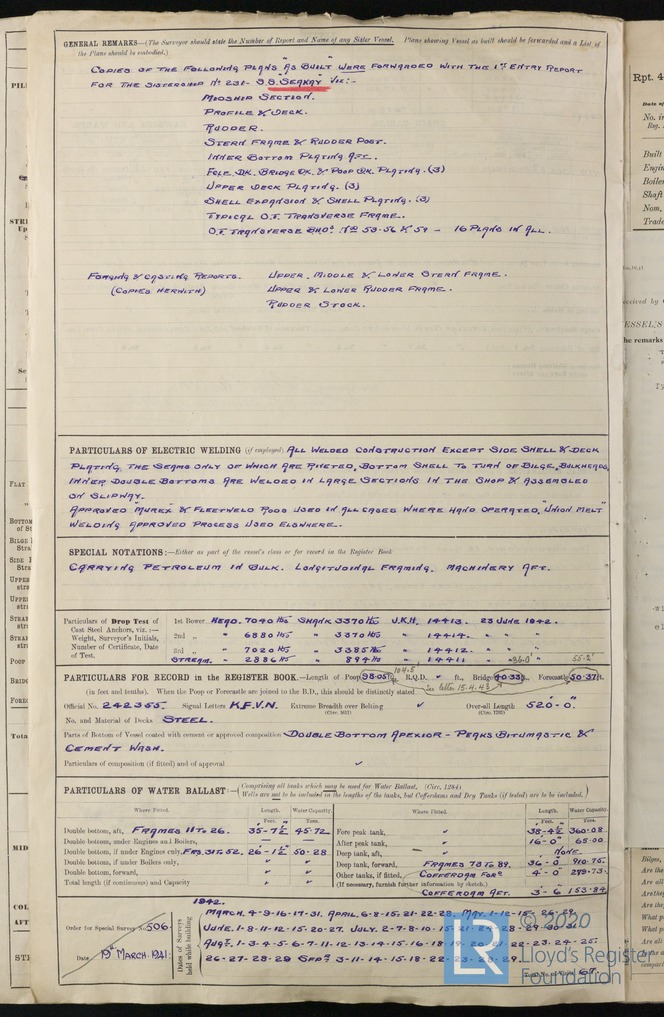 GENERAL REMARKS—(The Surveyor should state the Number of Report and Name of any Sister Vessel. Plans showing Vessel as built should be forwarded and a List of
the Plans should be embodied.)
COPIES OF THE FOLLOWING PLANS "AS BUILT" WERE FORWARDED WITH THE 1ST ENTRY REPORT
FOR THE SISTERSHIP No 231- S.S. "SEAKAY" VIZ:-
MIDSHIP SECTION.
PROFILE & DECK.
RUDDER.
STERN FRAME & RUDDER POST.
INNER BOTTOM PLATING AFT.
FOLE. DK. BRIDGE DK. & POOP DK. PLATING. (3)
UPPER DECK PLATING. (3)
SHELL EXPANSION & SHELL PLATING. (3)
TYPICAL O.T. TRANSVERSE FRAME.
O.T. TRANSVERSE BHDS. Nos 53-56 & 59 - 16 PLANS IN ALL.
FORGING & CASTING REPORTS. UPPER, MIDDLE & LOWER STERN FRAME.
(COPIES HERWITH) UPPER & LOWER RUDDER FRAME.
RUDDER STOCK.
PARTICULARS OF ELECTRIC WELDING (if employed) ALL WELDED CONSTRUCTION EXCEPT SIDE SHELL & DECK
PLATING, THE SEAMS ONLY OF WHICH ARE RIVETED, BOTTOM SHELL TO TURN OF BILGE, BULKHEADS,
INNER DOUBLE BOTTOMS ARE WELDED IN LARGE SECTIONS IN THE SHOP & ASSEMBLED
ON SLIPWAY.
APPROVED "MUREX" & FLEETWELD RODS USED IN ALL CASES WHERE HAND OPERATED, "UNION MELT"
WELDING APPROVED PROCESS USED ELSEWHERE.
SPECIAL NOTATIONS:—Either as part of the vessel's class or for record in the Register Book
CARRYING PETROLEUM IN BULK. LONGITUDINAL FRAMING. MACHINERY AFT.
Particulars of Drop Test of 1st Bower HEAD. 7040 lbs SHANK 3370 lbs J.K.H. 14413. 23 JUNE 1942.
Cast Steel Anchors, viz. :— 2nd " " 6880 lbs " 3370 lbs " 14414. " "
Weight, Surveyor's Initials,
Number of Certificate, Date 3rd " " 7020 lbs " 3385 lbs " 14412. " "
of Test. STREAM. " 2886 lbs " 894 lbs " 14411 " "
PARTICULARS FOR RECORD IN THE REGISTER BOOK.—Length of Poop 98.05 ft., R.Q.D. ft., Bridge 40.33 ft., Forecastle 50.37 ft.
104.5 55.2'
(in feet and tenths). When the Poop or Forecastle are joined to the B.D., this should be distinctly stated see letter 15.4.43
Official No. 242355. Signal Letters K.F.V.N. Extreme Breadth over Belting Over-all Length 520-0".
No. and Material of Decks STEEL.
Parts of Bottom of Vessel coated with cement or approved composition DOUBLE BOTTOM APEXIOR - PEAKS BITUMASTIC &
CEMENT WASH.
Particulars of composition (if fitted) and of approval
PARTICULARS OF WATER BALLAST:—(Comprising all tanks which may be used for Water Ballast, (Circ. 1284)
Wells are not to be included in the lengths of the tanks, but Cofferdams and Dry Tanks (if tested) are to be included.)
Where Fitted. Length. Water Capacity. Where Fitted. Length. Water Capacity.
Feet. Tons. Feet. Tons.
Double bottom, aft, FRAMES 11 TO 26. 35-7½ 45.72 Fore peak tank, 38-4½ 360.08
Double bottom, under Engines and Boilers, After peak tank, 16-0" 65.00
Double bottom, if under Engines only, FRS. 31 TO 52. 26-1½ 50.28 Deep tank, aft, NONE
Double bottom, if under Boilers only, Deep tank, forward, FRAMES 73 TO 89. 36-0 910.75
Double bottom, forward, Other tanks, if fitted, COFFERDAM FORD 4-0" 279.73
Total length (if continuous) and Capacity (If necessary, furnish further information by sketch.)
COFFERDAM AFT. 3-6 153.84
1942.
Order for Special Survey No. 506.
Date 19th MARCH. 1941.
Dates of Surveys held while building
MARCH. 4-9-16-17-31. APRIL. 6-8-15-21-22-28. MAY. 1-12-15-26-29.
JUNE. 1-8-11-12-15-20-27. JULY. 2-7-8-10-15-21-24-28-29-30-31.
AUGT. 1-3-4-5-6-7-11-12-13-14-15-16-18-19-20-21-22-23-24-25.
26-27-28-29 SEPT. 3-11-14-15-18-22-23-28-29.
Total No. of Visits 67.
© 2020
LR
Lloyd's Register
Foundation
Rpt. 4